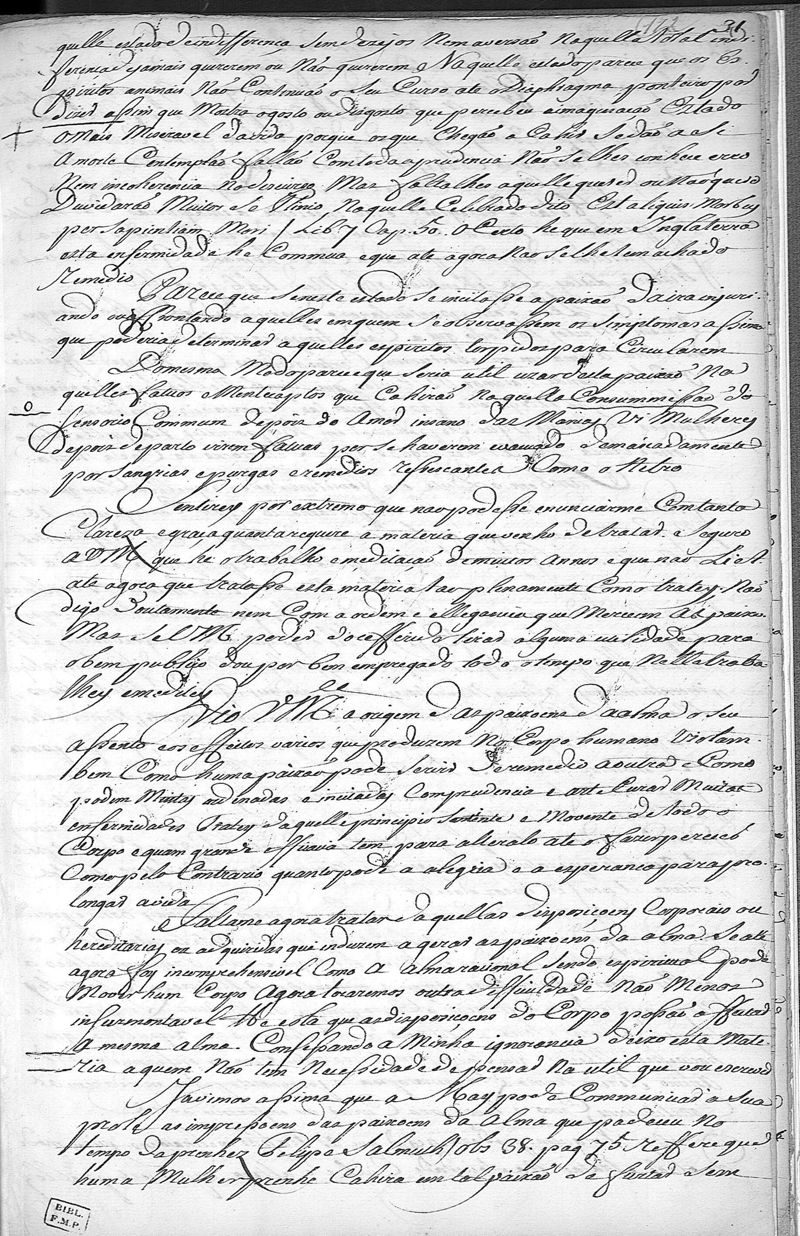 31
quelle estado de indifferença sem dezejos nem aversaõ Naquella total indi-
ferença de jamais quererem ou Naõ quererem Naquelle estado parece que os Es-
piritos animais Naõ Continuaõ o seu Curso ate o Diaphragma ponteiro por
dizer assim que Mostra o gosto ou disgosto que percebeu a imaginaçaõ Estado
o mais Miseravel da vida porque os que Chegaõ a Cahir se daõ a si
a morte Contemplaõ fallaõ Com toda a prudencia Naõ se lhes conhece erro
Nem incoherencia no discurso Mas falta lhes aquelle quised ou Naõ quero
Duvidaraõ Muitos se Plinio Naquelle Celebrado dito Est aliquis Morbus
per Sapientiam Mori / Lib 7 Cap. 50. O Certo he que em Inglaterra
esta enfermidade he Commua e que ate agora Nao se lhe tem achado
Remedio
Parece que se neste estado se incitasse a paixaõ da ira injuri-
ando ou afrontando aquelles em quem se observassem os simptomas assima
que poderia determinar aquelles espiritos torpidos para Circularem
Do mesmo Modo parece que seria util uzar desta paixaõ Na
quelles fatuos e Mentecaptos que Cahiraõ Naquella Consummissaõ do
o
sensorio Commum depois do Amor insano das Manias Vi Mulheres
depois de parto virem fatuas por se haverem evacuado demaziadamente
por sangrias e purgas e remedios refrescantes Como o Nitro
Sentirey por extremo que nao podesse enunciarme Com tanta
Clareza e graça quanta requere a materia que venho de tratar. Seguro
a VM que he o trabalho e meditaçaõ de muitos annos e que naõ Li
ate agora que tratasse esta materia tao plenamente Como tratey. Naõ
digo doutamente nem Com a ordem e ellegancia que Merecem As paixo.
Mas se VM. poder do offerecido tirar alguma utilidade para
o bem publico dou por bem empregado todo o tempo que Nella traba
lhey e medites
Vio VM.ce a origem das paixoens da alma o seu
assento e os effeitos varios que produzem No Corpo humano Vio tam-
bem Como huma paixaõ pode servir de remedio a outra e Como
podem Muitas ordinadas e incitadas Com prudencia e arte Curar Muitas
enfermidades Tratey daquelle principio Sentinte e Movente de todo o
Corpo e quam grande efficacia tem para alteralo ate o fazer perecer
Como pelo Contrario quanto pode a alegria e a esperança para pro-
longar a vida
Faltame agora tratar daquellas dispoziçoens Corporais ou
hereditarias ou adquiridas que induzem a gerar as paixoens da alma. Se ate
agora foy incomprehensivel Como A alma racional sendo espiritual pode
Mover hum Corpo Agora tocaremos outra difficuldade Naõ Menos
insurmontavel He esta que as disposiçoens do Corpo possaõ affectar
A mesma alma. Confessando a Minha ignorancia deixo esta Mate-
ria a quem Naõ tem Necessidade de pensar Na util que vou escrever
Ja vimos assima que a May pode Communicar a sua
prole as impressoens das paixoens da Alma que padeceu No
tempo da prenhez Felipe Salmuth / obs 38. pag 75 refere que
huma Mulher prenhe Cahira em tal paixaõ de furtar sem
BIBL.
F.M.P.